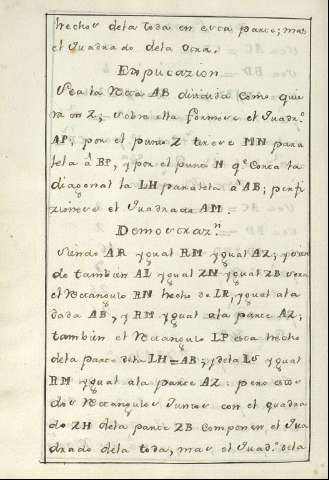 hechos dela toda en esta parte; mas
el Quadrado dela otra.
Explicazion
Sea la Recta AB dividida como quie
ra en Z; sobre ella formese el Quadr.º
AP, por el punto Z tirese MN para
lela â BP, y por el punto N q.e corta la
diagonal la LH paralela â AB; perfi
zionese el Quadrado AM.
Demostraz.n
Siendo AR ygual RM ygual AZ; y sien
do tambien AL ygual ZN ygual ZB sera
el Rectangulo RN hecho de LR, ygual ala
dada AB, y RM ygual ala parte AZ;
tambien el Rectangulo LP esta hecho
dela parte dela LH=AB; y dela ygual
RM ygual ala parte AZ: pero estos
dos Rectangulos juntos con el quadra
do ZH dela parte ZB componen el Qua
drado dela toda, mas el Quad.º dela